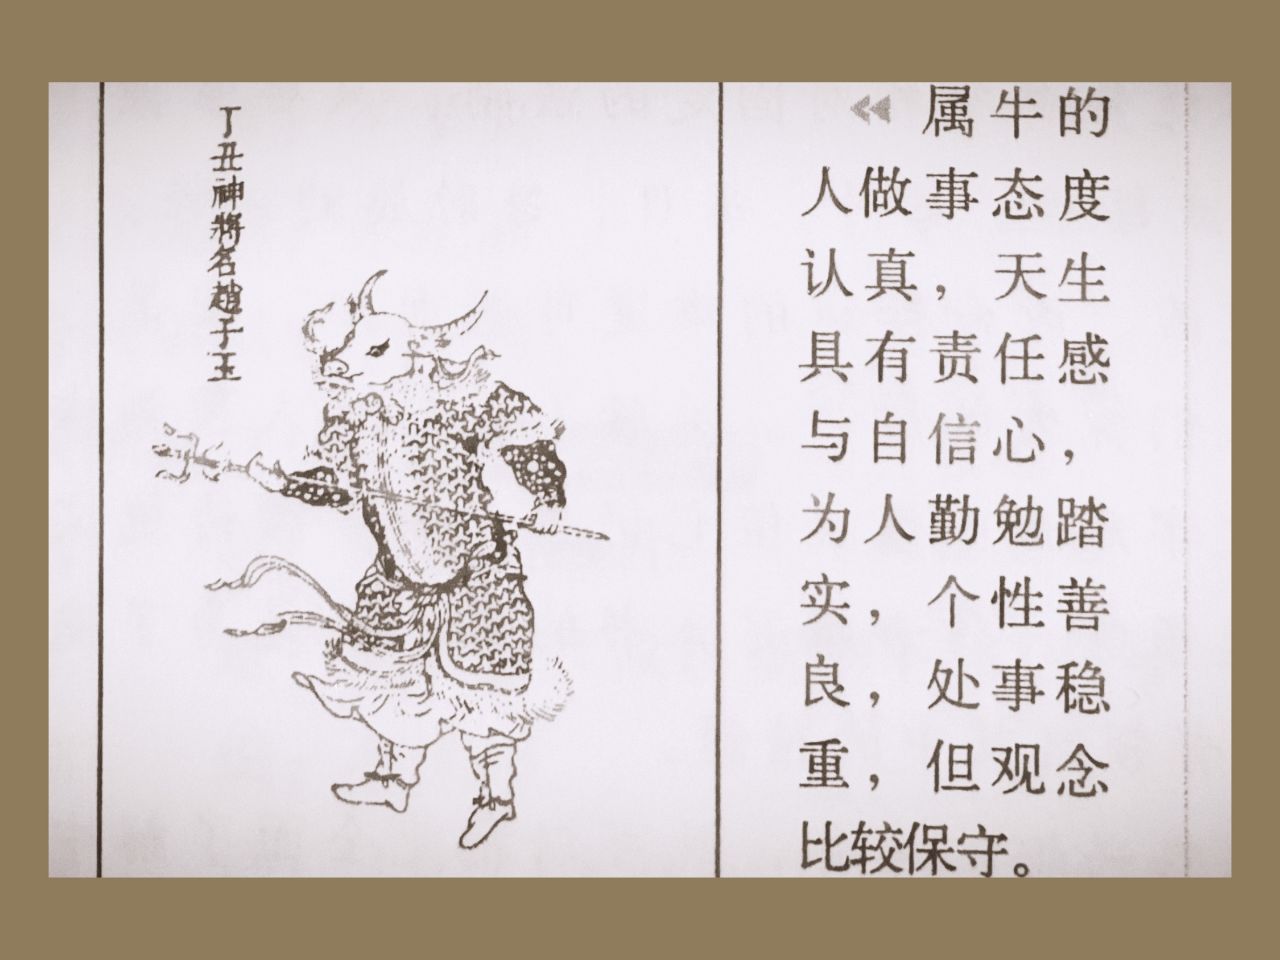 丁丑神將名趙子玉
属牛的
人做事态度
认真，天生
具有责任感
与自信心，
为人勤勉踏
实，个性善
良，处事稳
重，但观念
比较保守。